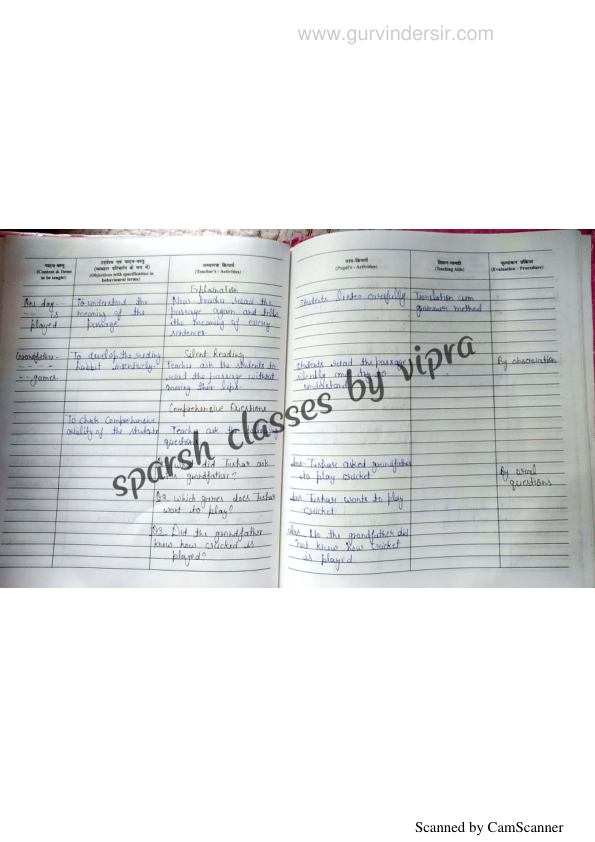 www.gurvindersir.com
पाठ्य-वस्तु
(Content & Items
to be taught)
उद्देश्य एवं पाठ्य-वस्तु
(व्यवहार परिवर्तन के रूप में)
(Objectives with specification in
behavioural terms)
अध्यापक क्रियायें
(Teacher's - Activities)
छात्र-क्रियायें
(Pupil's - Activities)
शिक्षण-सामग्री
(Teaching Aids)
मूल्यांकन प्रक्रिया
(Evaluation - Procedure)
Explanation
One day ---
-- is
played
To understand the
meaning of the
passage
Now teacher read the
passage again and tells
the meaning of every
sentence
Students listen carefully
Translation cum
grammar method
Grandfather-
- - - -
-- games
To develop the reading
habbit attentively.
Silent Reading
Teacher ask the students to
read the passage without
moving their lips.
Students read the passage
silently and try to
understand
By observation
Comprehensive Questions
To check Comprehensive
quality of the students
Teacher ask the
questions
did Tushar ask
grandfather?
Ans- Tushar asked grandfather
to play cricket
By oral
questions
Q2 which games does Tushar
want to play?
Ans Tushar wants to play
cricket
Q3. Did the grandfather
know how cricket is
played?
Ans No the grandfather did
not know how cricket
is played
sparsh classes by vipra
Scanned by CamScanner